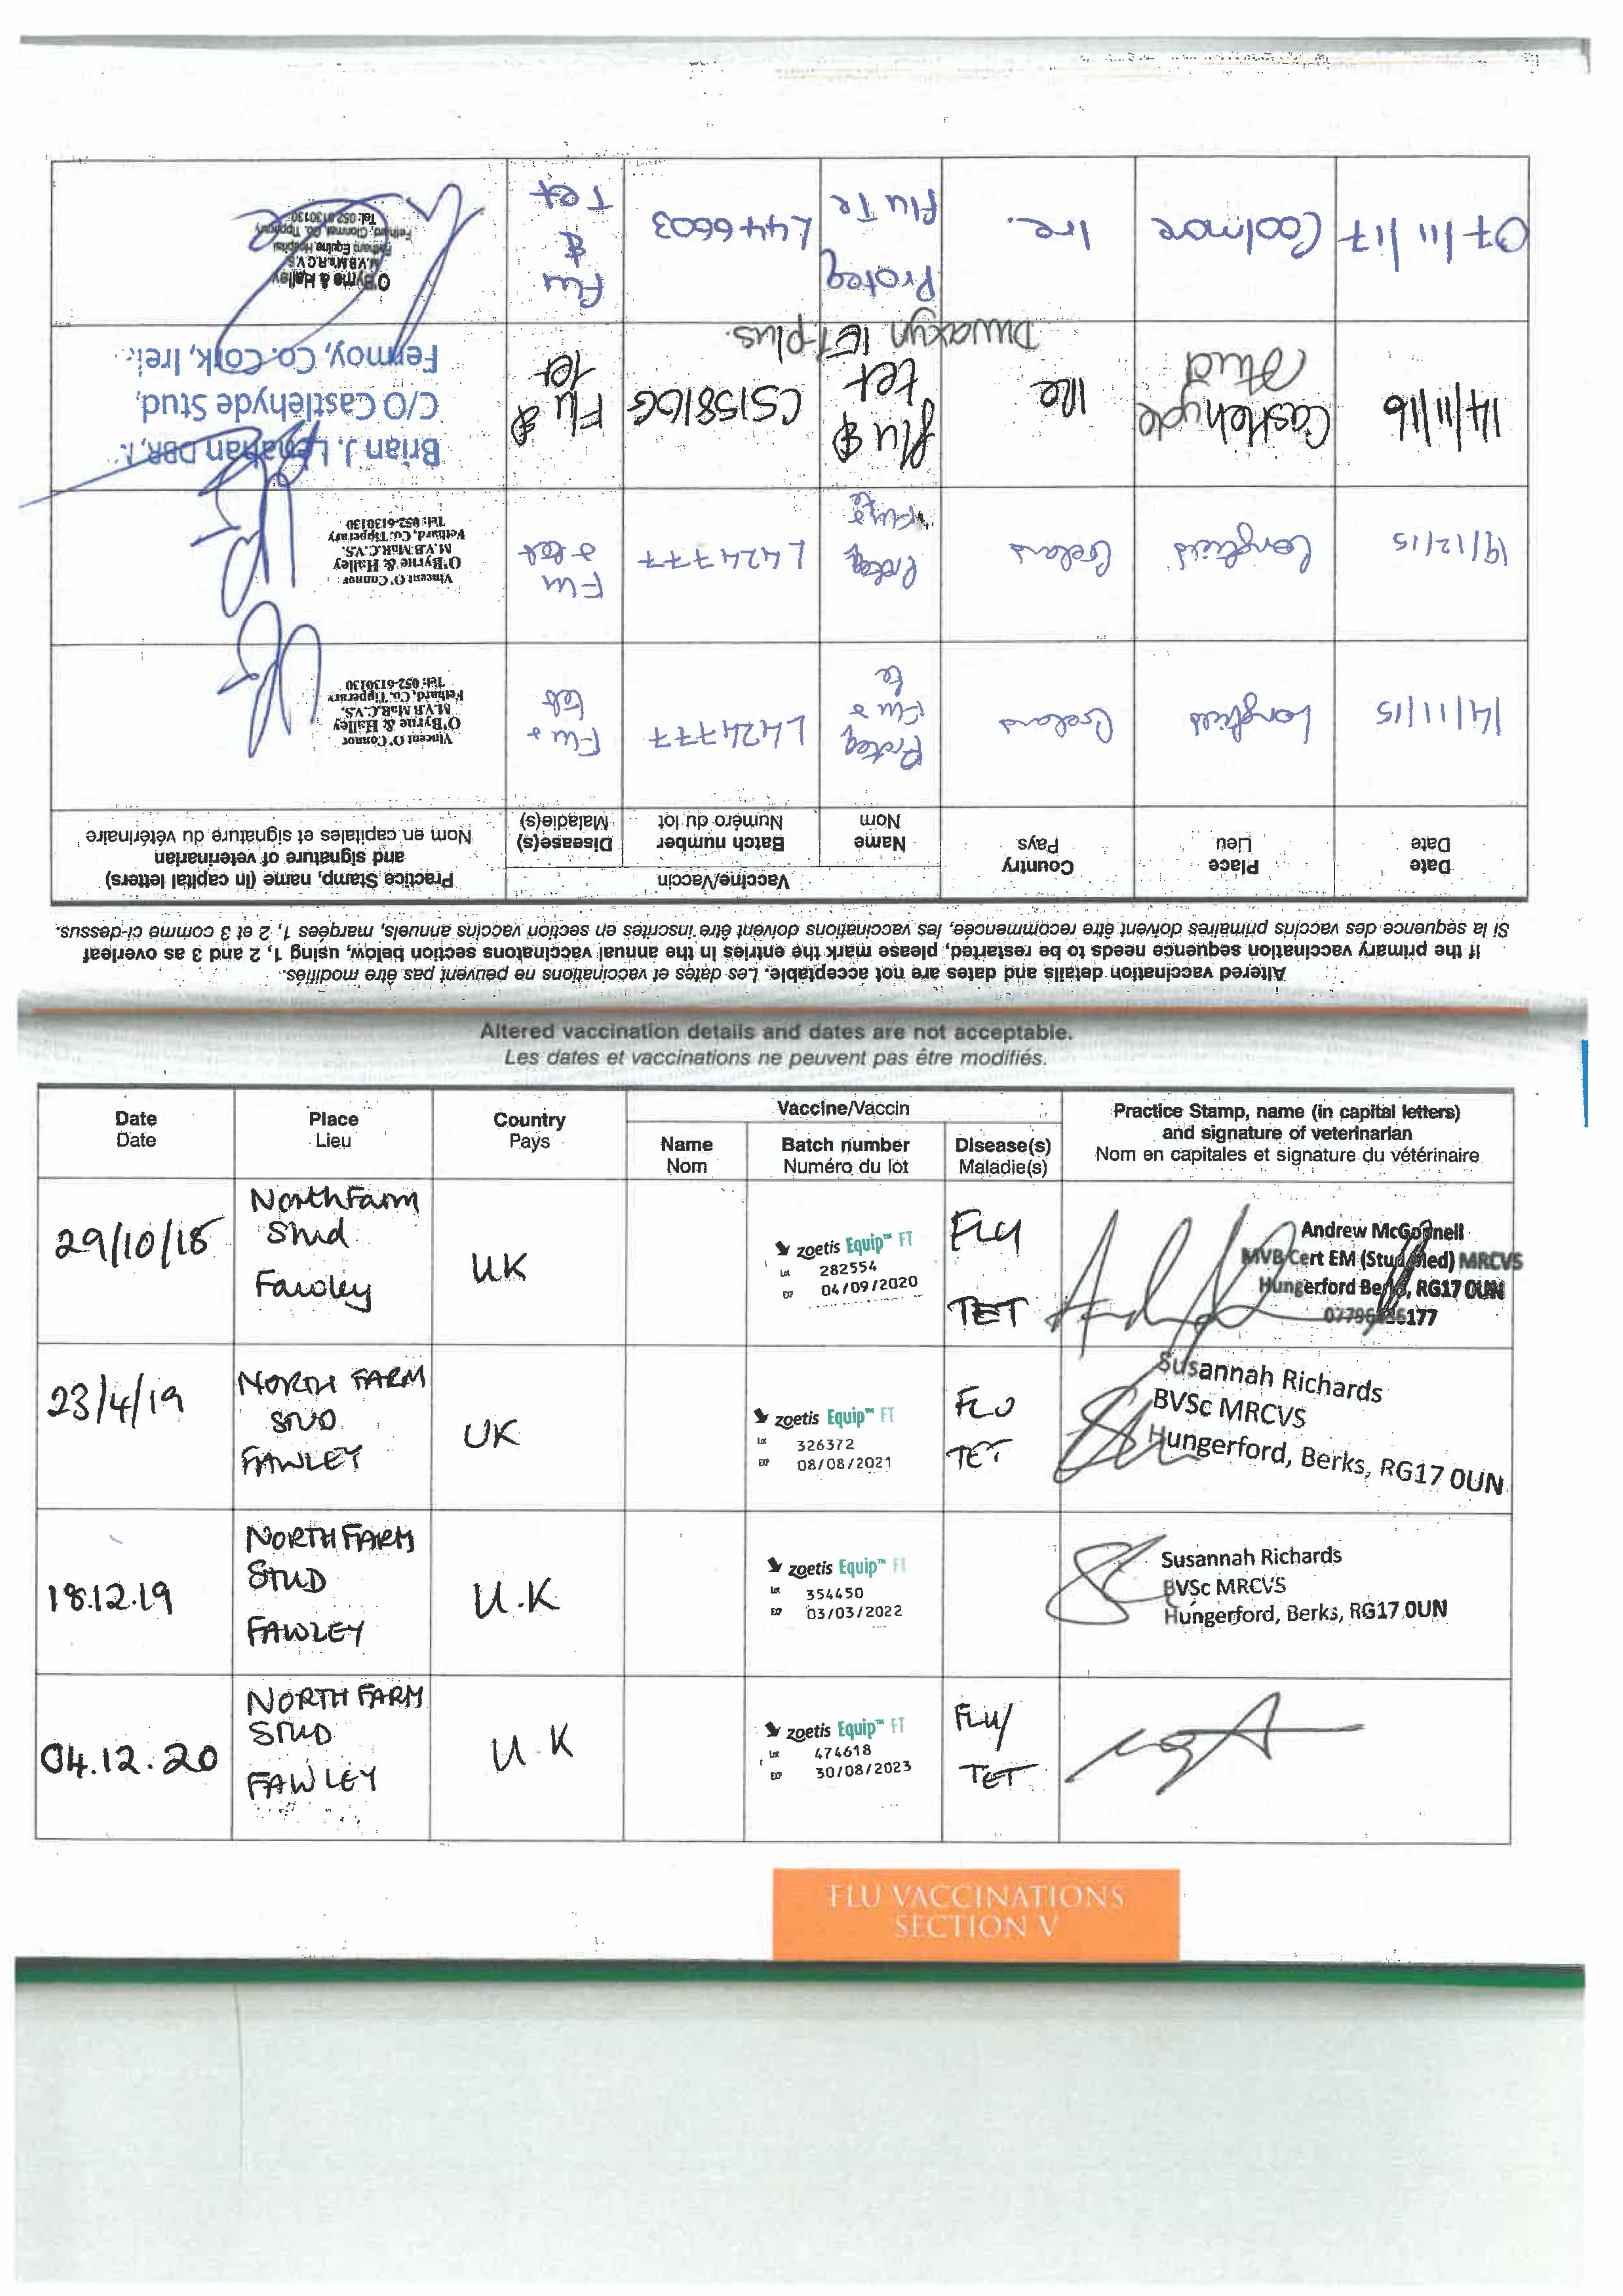 Altered vaccination details and dates are not acceptable. Les dates et vaccinations ne peuvent pas être modifiés.
If the primary vaccination sequence needs to be restarted, please mark the entries in the annual vaccinatons section below, using 1, 2 and 3 as overleaf
Si la séquence des vaccins primaires doivent être recommencée, les vaccinations doivent être inscrites en section vaccins annuels, marqées 1, 2 et 3 comme ci-dessus.
Date
Date
Place
Lieu
Country
Pays
Vaccine/Vaccin
Name
Nom
Batch number
Numéro du lot
Disease(s)
Maladie(s)
Practice Stamp, name (in capital letters)
and signature of veterinarian
Nom en capitales et signature du vétérinaire
14/11/15
Longfield
Ireland
Proteq
Flu &
te
L424777
Flu &
tet
Vincent O'Connor
O'Byrne & Halley
M.V.B MaR.C.V.S.
Fethard, Co. Tipperary
Tel: 052-6130130
19/12/15
Longfield
Ireland
Proteq
Flu &
te
L424777
Flu
& tet
Vincent O'Connor
O'Byrne & Halley
M.V.B MaR.C.V.S.
Fethard, Co. Tipperary
Tel: 052-6130130
14/11/16
Castlehyde
Stud
IRe
flu &
tet
Duvaxyn IET plus.
C515810G
Flu &
Tet
Brian J.
C/O Castlehyde Stud,
Fermoy, Co. Cork, Irel.
07/11/17
Coolmore
Ire.
Proteq
Flu Te
L446603
Flu
&
Tet
O'Byrne & Halley
M.V.B M.R.C.V.S
Fethard Equine Hospital
Fethard, Clonmel, Co. Tipperary
Tel: 052 6130130
Altered vaccination details and dates are not acceptable.
Les dates et vaccinations ne peuvent pas être modifiés.
Date
Date
Place
Lieu
Country
Pays
Vaccine/Vaccin
Name
Nom
Batch number
Numéro du lot
Disease(s)
Maladie(s)
Practice Stamp, name (in capital letters)
and signature of veterinarian
Nom en capitales et signature du vétérinaire
29/10/18
North Farm
Stud
Fawley
UK
zoetis Equip™ FT
Lot 282554
EXP 04/09/2020
FLU
TET
Andrew McGonnell
MVB Cert EM (Stud Med) MRCVS
Hungerford Berks, RG17 0UN
23/4/19
NORTH FARM
STUD
FAWLEY
UK
zoetis Equip™ FT
Lot 326372
EXP 08/08/2021
FLU
TET
Susannah Richards
BVSc MRCVS
Hungerford, Berks, RG17 0UN
18.12.19
NORTH FARM
STUD
FAWLEY
U.K
zoetis Equip™ FT
Lot 354450
EXP 03/03/2022
Susannah Richards
BVSc MRCVS
Hungerford, Berks, RG17 0UN
04.12.20
NORTH FARM
STUD
FAWLEY
U.K
zoetis Equip™ FT
Lot 474618
EXP 30/08/2023
FLU/
TET
FLU VACCINATIONS
SECTION V